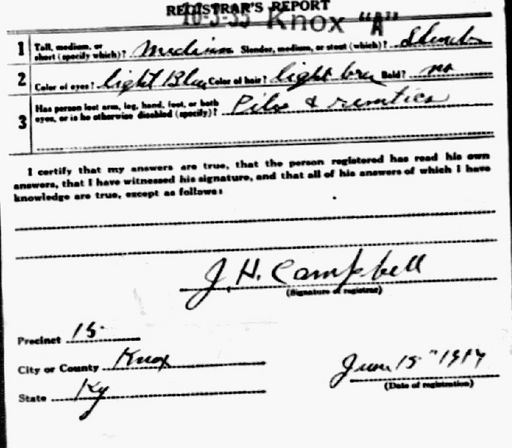 REGISTRAR'S REPORT
16-3-35 Knox "A"
1 Tall, medium, or short (specify which)? Medium Slender, medium, or stout (which)? Slender
2 Color of eyes? light Blue Color of hair? light brn Bald? no
3 Has person lost arm, leg, hand, foot, or both eyes, or is he otherwise disabled (specify)? Piles &
I certify that my answers are true, that the person registered has read his own
answers, that I have witnessed his signature, and that all of his answers of which I have
knowledge are true, except as follows:
J. H. Campbell
(Signature of registrar)
Precinct 15
City or County Knox
State Ky
June 15" 1917
(Date of registration)